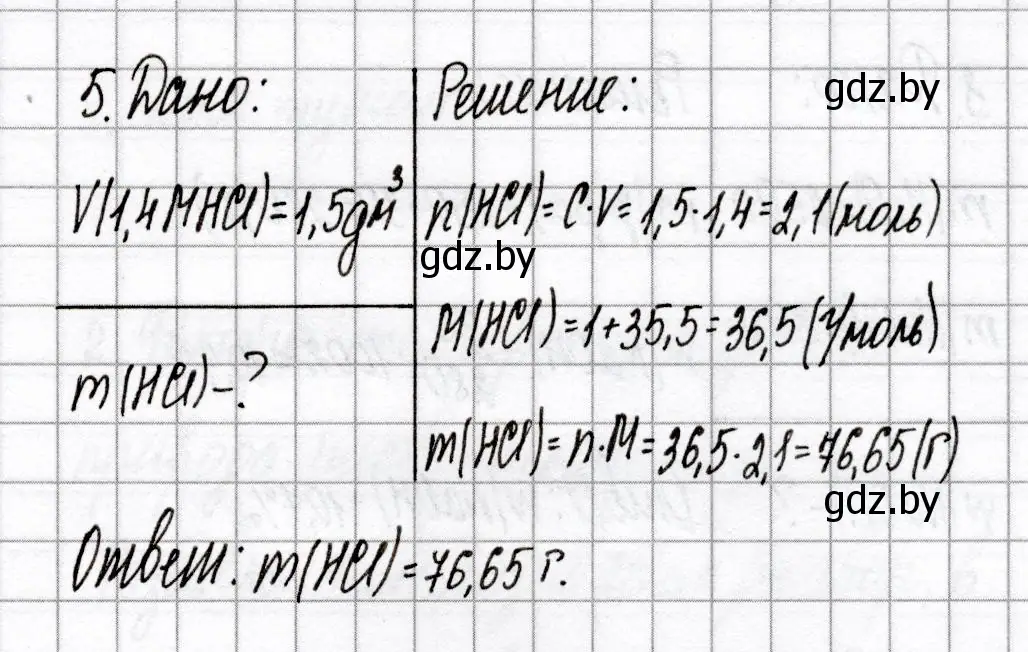 5. Дано:
V(1,4 M HCl) = 1,5 дм³
m(HCl) – ?
Решение:
gdz.by
n(HCl) = C·V = 1,5·1,4 = 2,1 (моль)
gdz.by
M(HCl) = 1+35,5 = 36,5 (г/моль)
m(HCl) = n·M = 36,5·2,1 = 76,65 (г)
gdz.by
Ответ: m(HCl) = 76,65 г.